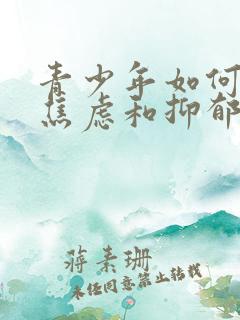 青少年如何
焦虑和抑郁
蒋素珊
未经同意禁止转载